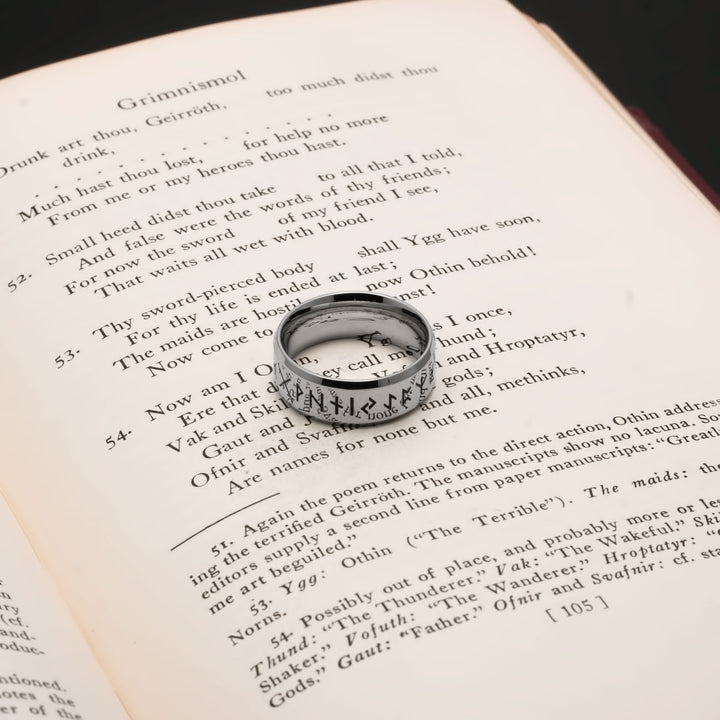 Grimnismol
Drunk art thou, Geirröth, too much didst thou
drink,
. . . . . . . . . . . . . .
Much hast thou lost, for help no more
From me or my heroes thou hast.
52. Small heed didst thou take to all that I told,
And false were the words of thy friends;
For now the sword of my friend I see,
That waits all wet with blood.
53. Thy sword-pierced body shall Ygg have soon,
For thy life is ended at last;
The maids are now Othin behold!
Now come
54. Now am I I once,
Ere that call
Vak and and Hroptatyr,
Gaut and gods;
Ofnir and and all, methinks,
Are names for none but me.
ᚷᚹᚺᚾᛁᛃᛇᛈᛉ
51. Again the poem returns to the direct action, Othin
ing the terrified Geirröth. The manuscripts show no lacuna.
editors supply a second line from paper manuscripts:
me art beguiled."
53. Ygg: Othin ("The Terrible"). The maids:
Norns.
54. Possibly out of place, and probably more or
Thund: "The Thunderer." Vak: "The Wakeful."
Shaker." Vofuth: "The Wanderer." Hroptatyr:
Gods." Gaut: "Father." Ofnir and Svafnir: cf.
[ 105 ]
(cf.
the
of the